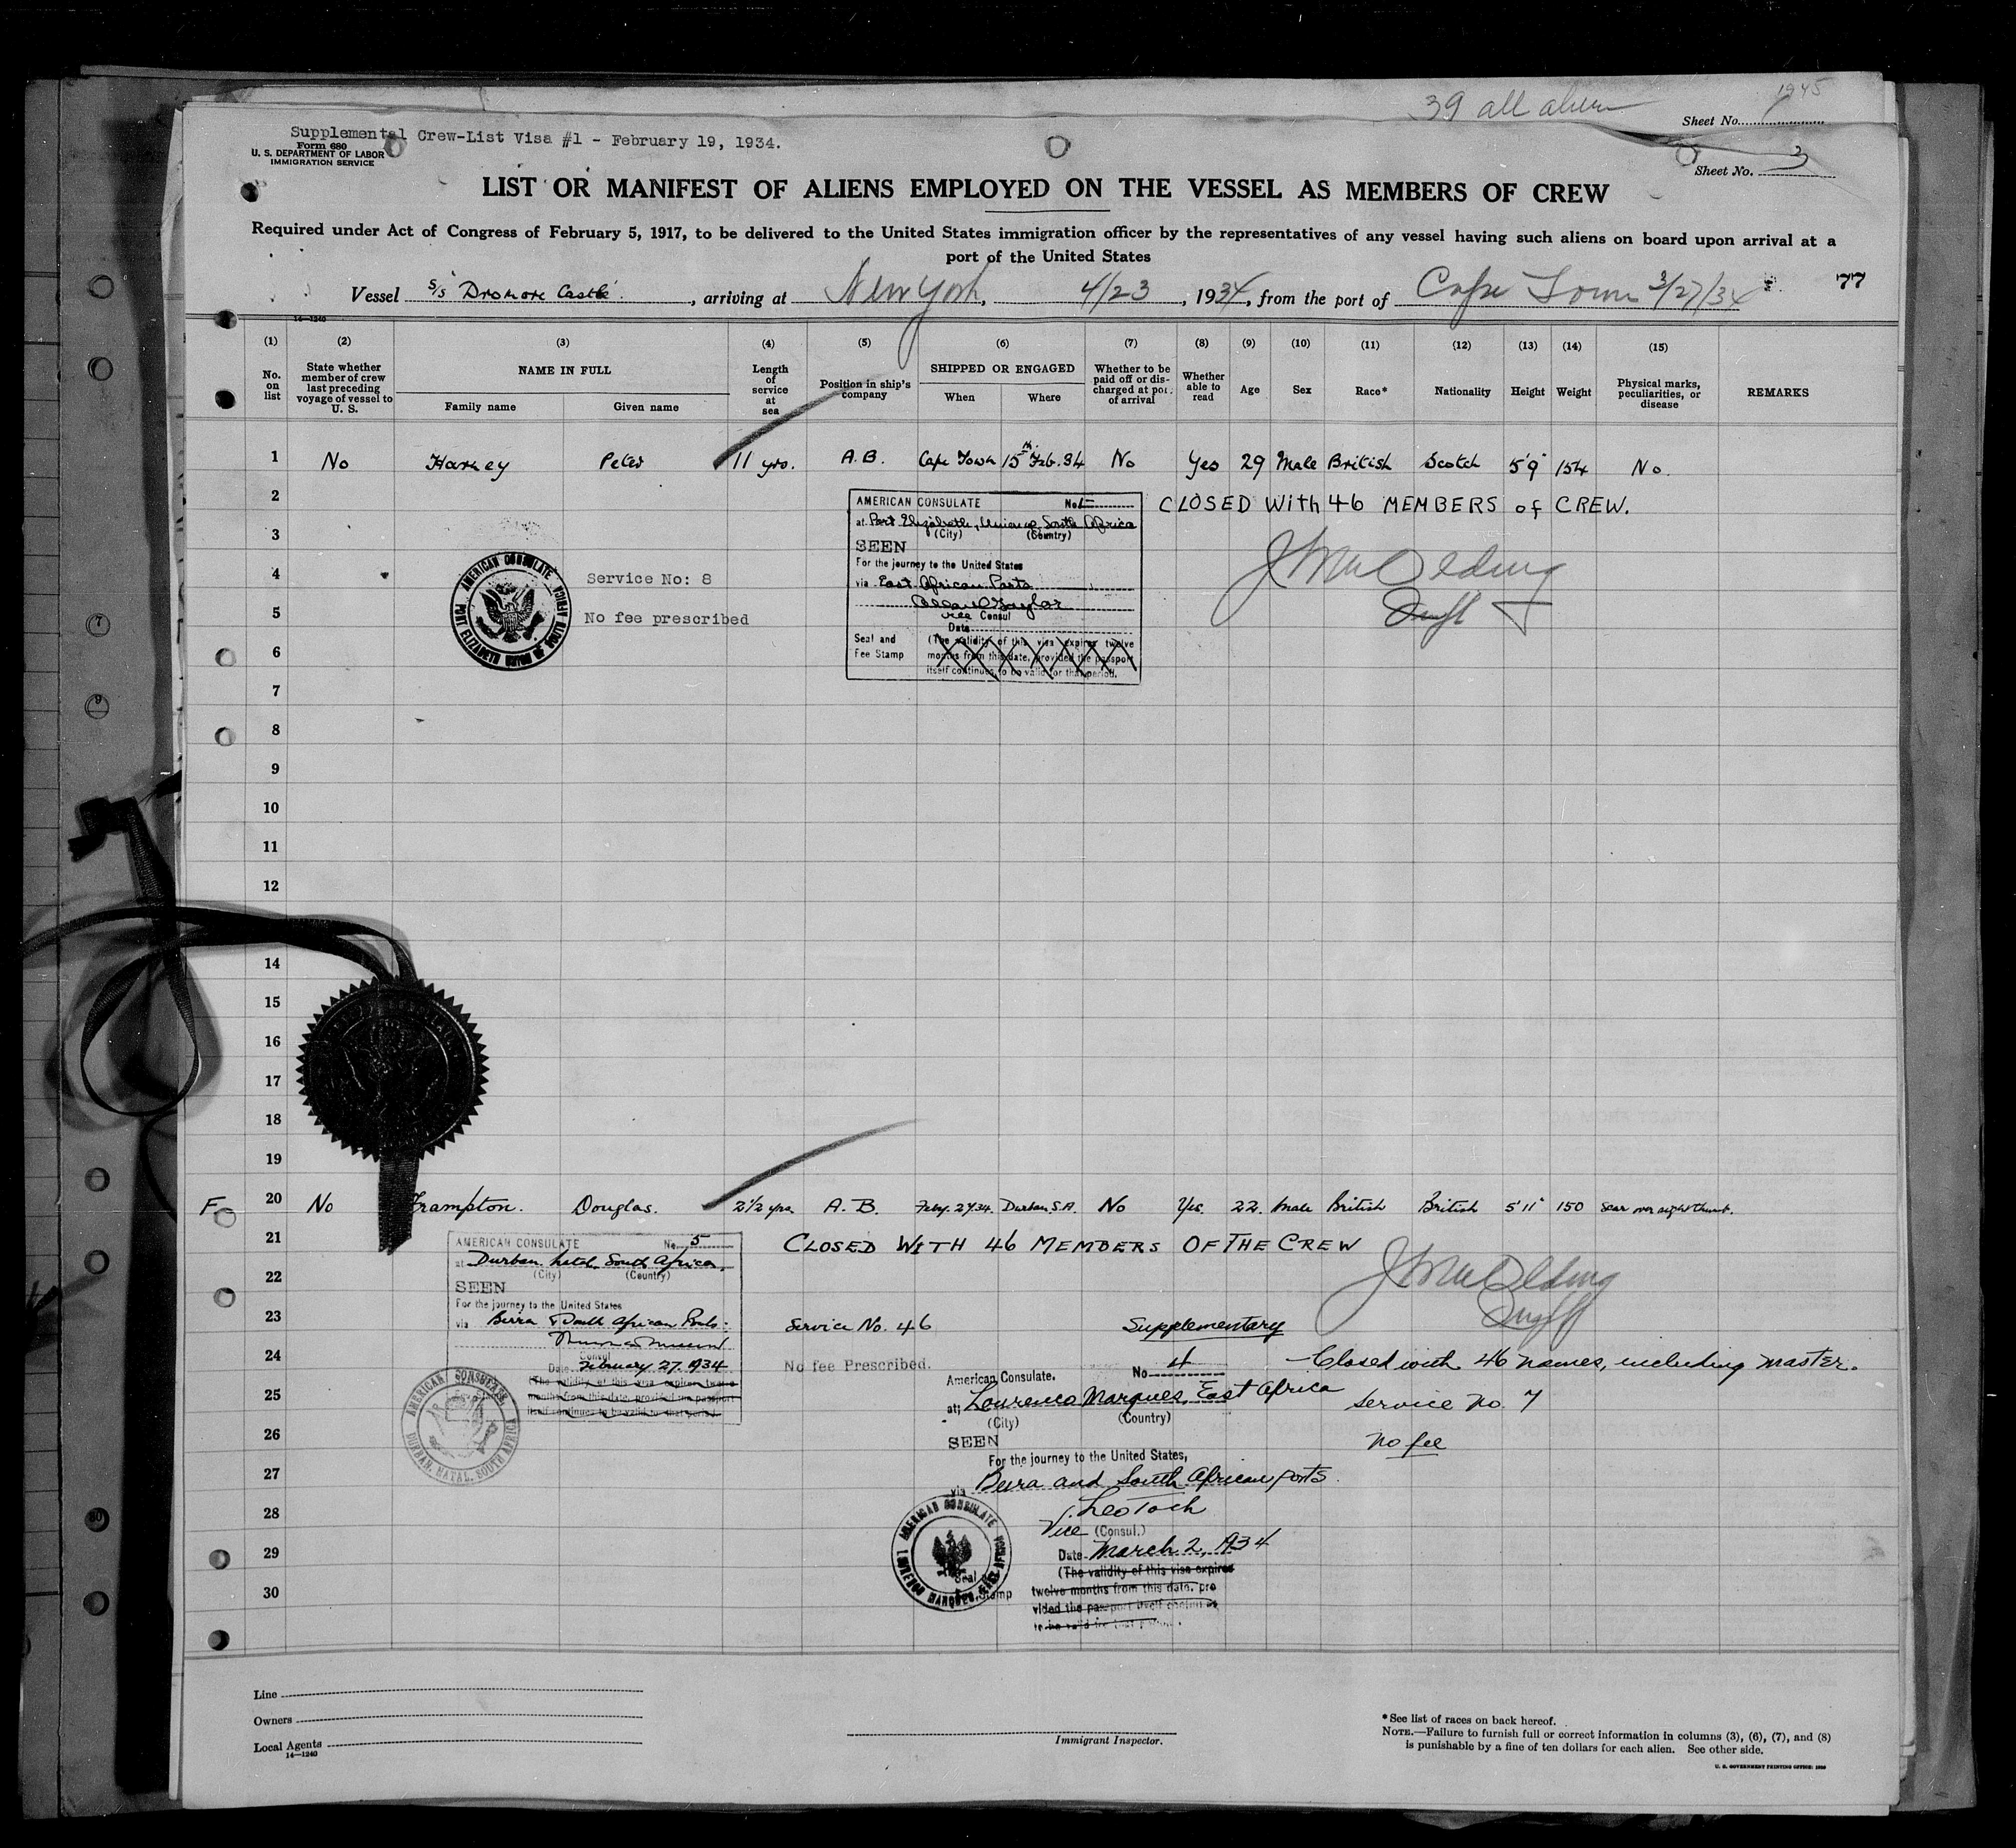 39 all alien
1945
Sheet No. 1
Supplemental Crew-List Visa #1 - February 19, 1934.
Form 680
U. S. DEPARTMENT OF LABOR
IMMIGRATION SERVICE
Sheet No. 3
LIST OR MANIFEST OF ALIENS EMPLOYED ON THE VESSEL AS MEMBERS OF CREW
Required under Act of Congress of February 5, 1917, to be delivered to the United States immigration officer by the representatives of any vessel having such aliens on board upon arrival at a
port of the United States
Vessel S/S Dromore Castle, arriving at New York, 4/23, 1934, from the port of Cape Town 3/27/34 77
14—1240
(1) (2) (3) (4) (5) (6) (7) (8) (9) (10) (11) (12) (13) (14) (15)
No. on list State whether member of crew last preceding voyage of vessel to U. S. NAME IN FULL Family name Given name Length of service at sea Position in ship's company SHIPPED OR ENGAGED When Where Whether to be paid off or discharged at port of arrival Whether able to read Age Sex Race* Nationality Height Weight Physical marks, peculiarities, or disease REMARKS
1 No Harvey Peter 11 yrs. A.B. Cape Town 15th Feb. 34 No Yes 29 Male British Scotch 5'9" 154 No.
2 AMERICAN CONSULATE No. 1 CLOSED With 46 MEMBERS of CREW.
at Port Elizabeth, Union of South Africa
3 (City) (Country)
SEEN
For the journey to the United States
4 Service No: 8
via East African Ports
5 No fee prescribed
Vice Consul
Date
Seal and Fee Stamp
6 (The validity of this visa expires twelve
months from this date, provided the passport
itself continues to be valid for that period.
AMERICAN CONSULATE PORT ELIZABETH UNION OF SOUTH AFRICA
7
8
9
10
11
12
14
15
16
17
18
19
F 20 No Frampton. Douglas. 2 1/2 yrs. A. B. Feby. 27 34. Durban S.A. No Yes. 22. Male British British 5'11" 150 Scar over right thumb.
21 AMERICAN CONSULATE No. 5 CLOSED WITH 46 MEMBERS OF THE CREW
at Durban, Natal, South Africa.
22 (City) (Country)
SEEN
For the journey to the United States
23 via Beira & South African Ports.
Service No. 46 Supplementary
Consul
24 Date February 27, 1934
No fee Prescribed. No 4 Closed with 46 names, including master.
(The validity of this visa expires twelve
25 months from this date, provided the passport
itself continues to be valid for that period.
AMERICAN CONSULATE DURBAN, NATAL, SOUTH AFRICA
American Consulate.
at; Lourenco Marques, East Africa Service No. 7
(City) (Country)
26 SEEN No fee
For the journey to the United States,
27 via Beira and South African ports.
28 Leo Toch
Vice (Consul.)
29 Date March 2, 1934
(The validity of this visa expires
30 twelve months from this date, pro
vided the passport itself continues
to be valid for that period.
AMERICAN CONSULATE LOURENCO MARQUES EAST AFRICA
Line
Owners
Local Agents
14—1240
Immigrant Inspector.
*See list of races on back hereof.
NOTE.—Failure to furnish full or correct information in columns (3), (6), (7), and (8)
is punishable by a fine of ten dollars for each alien. See other side.
U. S. GOVERNMENT PRINTING OFFICE: 1930